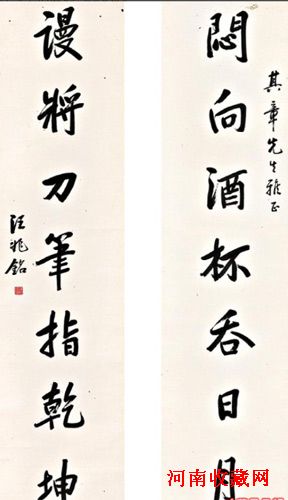 其章先生雅正
悶向酒杯吞日月
謾將刀筆指乾坤
汪兆銘
河南收藏网